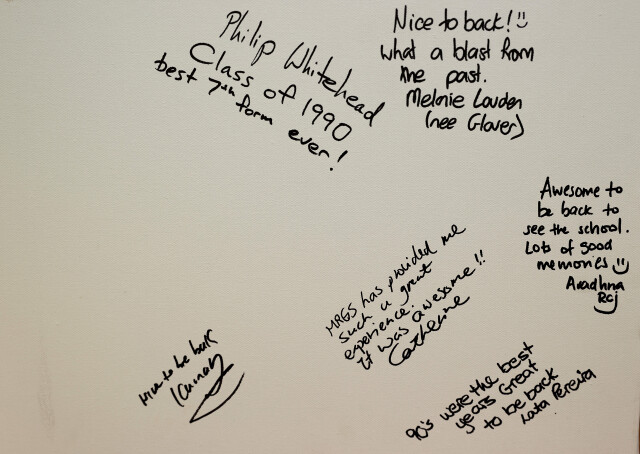 Philip Whitehead
Class of 1990
best 7th form ever!
Nice to back! :)
what a blast from
the past.
Melanie Louden
(nee Glover)
Awesome to
be back to
see the school.
Lots of good
memories :)
Aradhna
Raj
MRGS has provided me
such a great
experience.
It was awesome!!
Catherine
Nice to be back
90's were the best
years Great
to be back
Lata Pereira